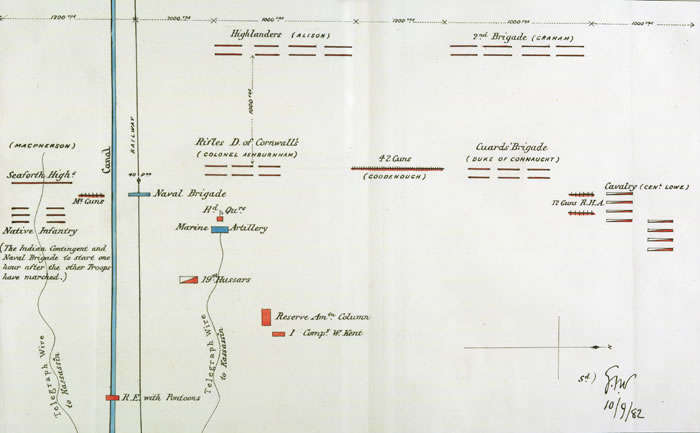 1200 yds 2000 yds 1000 yds 1200 yds 1000 yds
Highlanders (ALISON)
2nd Brigade (GRAHAM)
1000 yds
RAILWAY
Canal
(MACPHERSON)
Seaforth Highs
Mn Guns
Native Infantry
(The Indian Contingent and
Naval Brigade to start one
hour after the other Troops
have marched.)
40 Pr
Naval Brigade
Rifles D. of Cornwall's
(COLONEL ASHBURNHAM)
42 Guns
(GOODENOUGH)
Guards' Brigade
(DUKE OF CONNAUGHT)
Cavalry (GENL LOWE)
12 Guns R.H.A.
Hd Qurs
Marine Artillery
19th Hussars
Reserve Amtn Column
1 Compy W. Kent
Telegraph Wire
to Kassassin
Telegraph Wire
to Kassassin
R.E. with Pontoons
Sd)
G.W
10/9/82